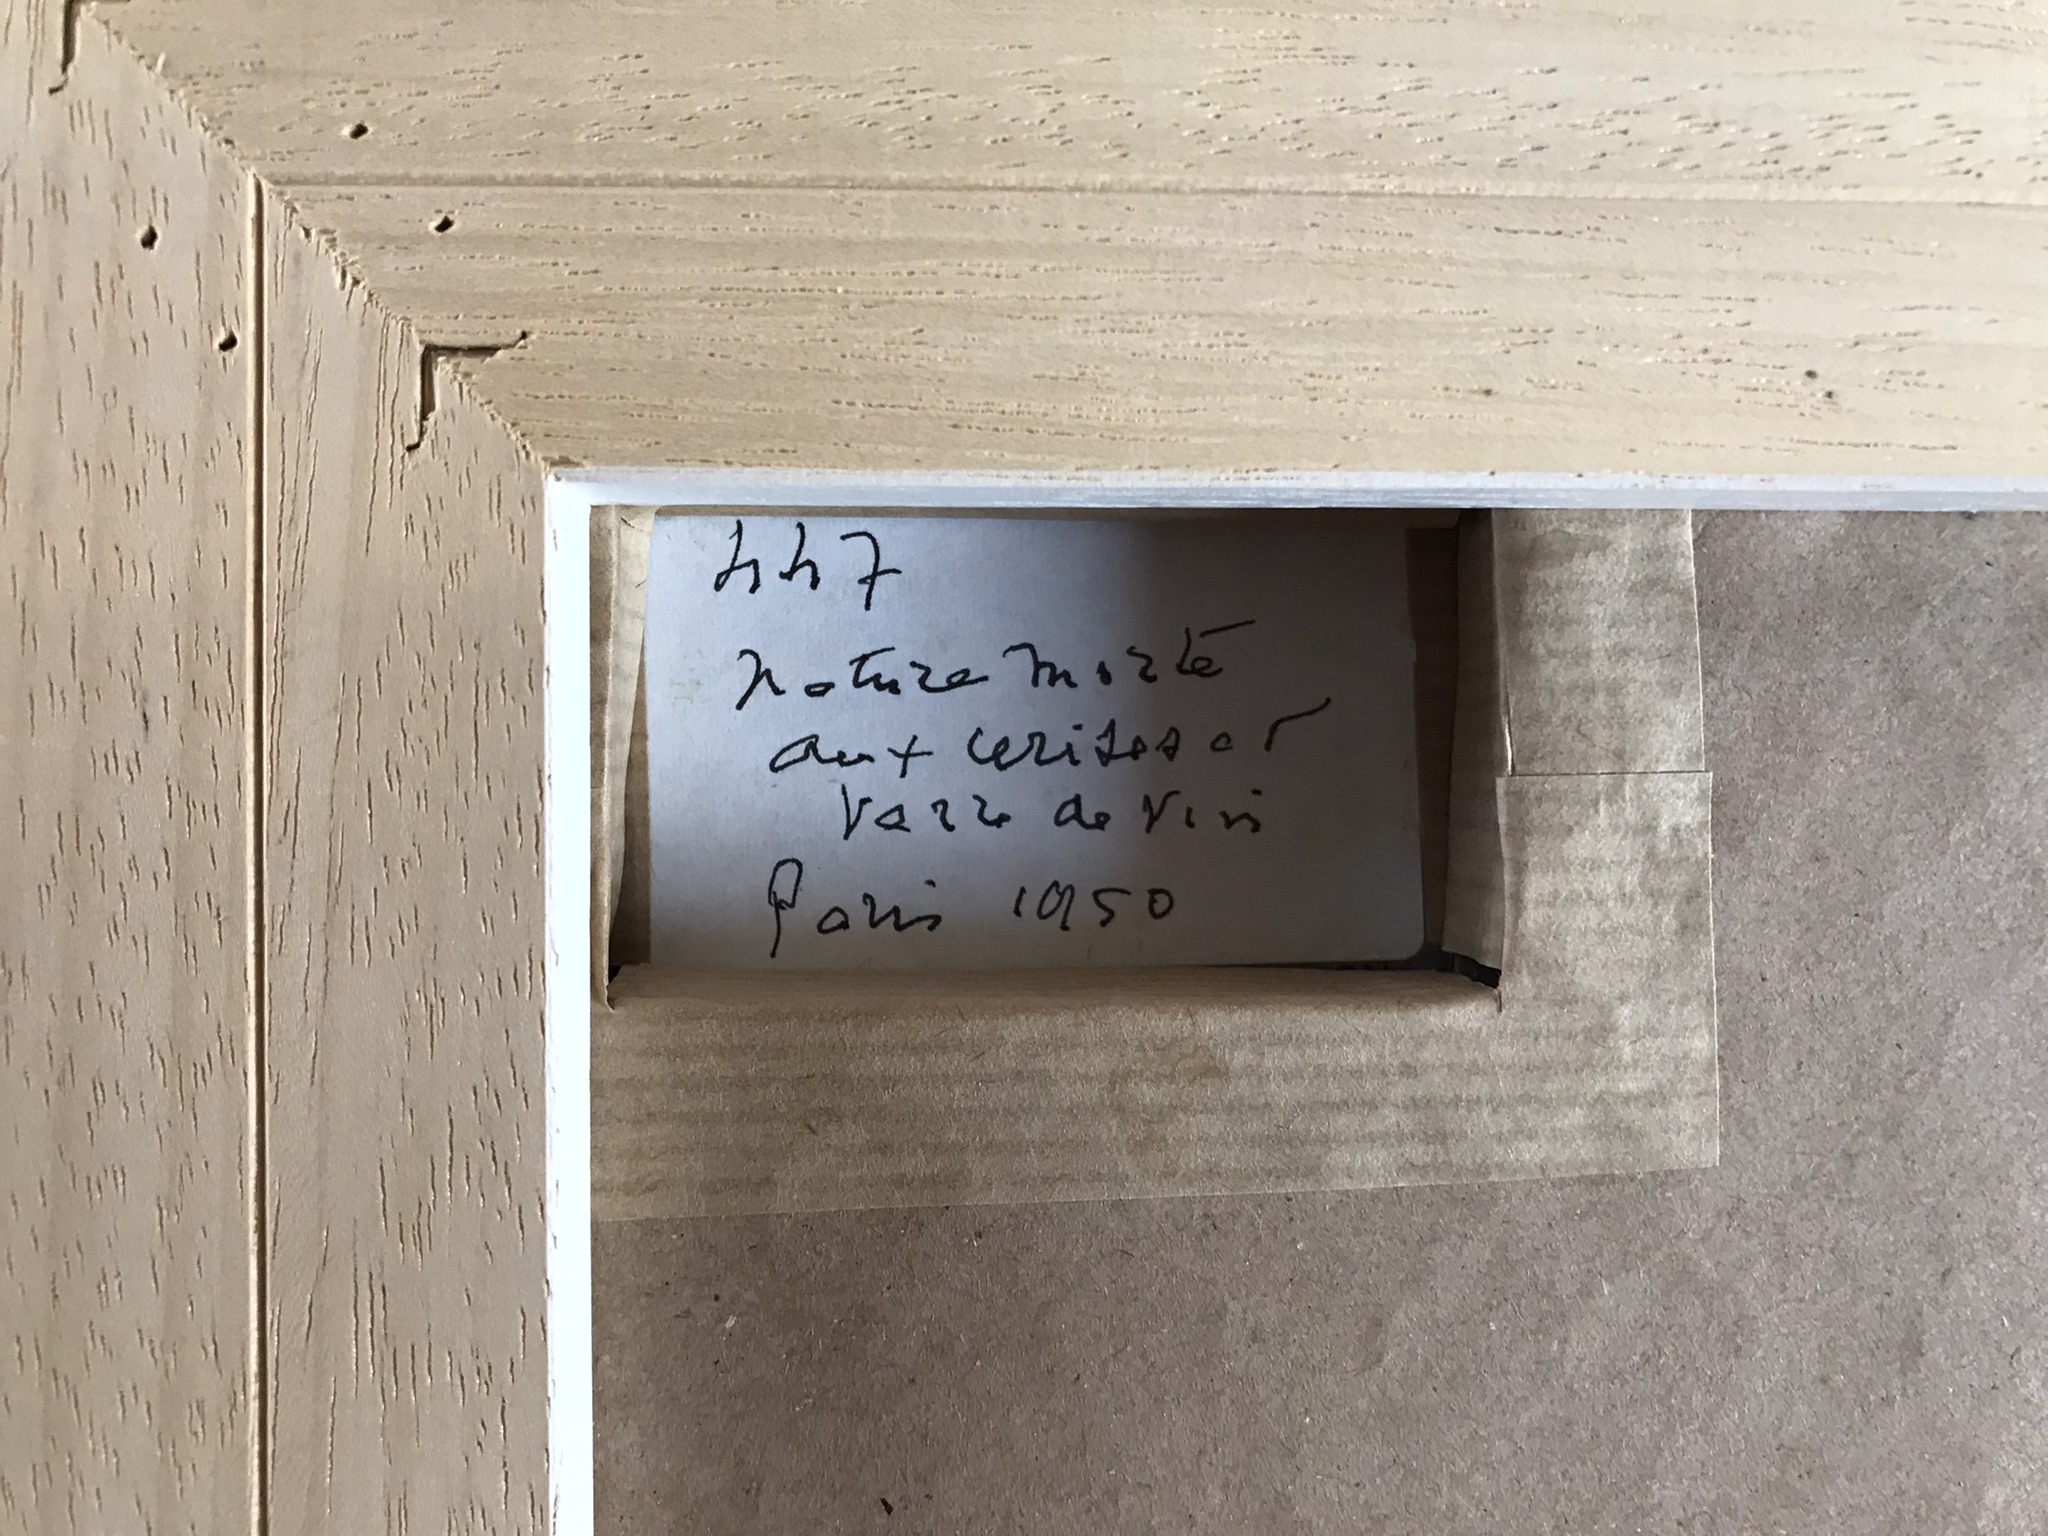 447
nature morte
aux cerises et
verre de vin
Paris 1950